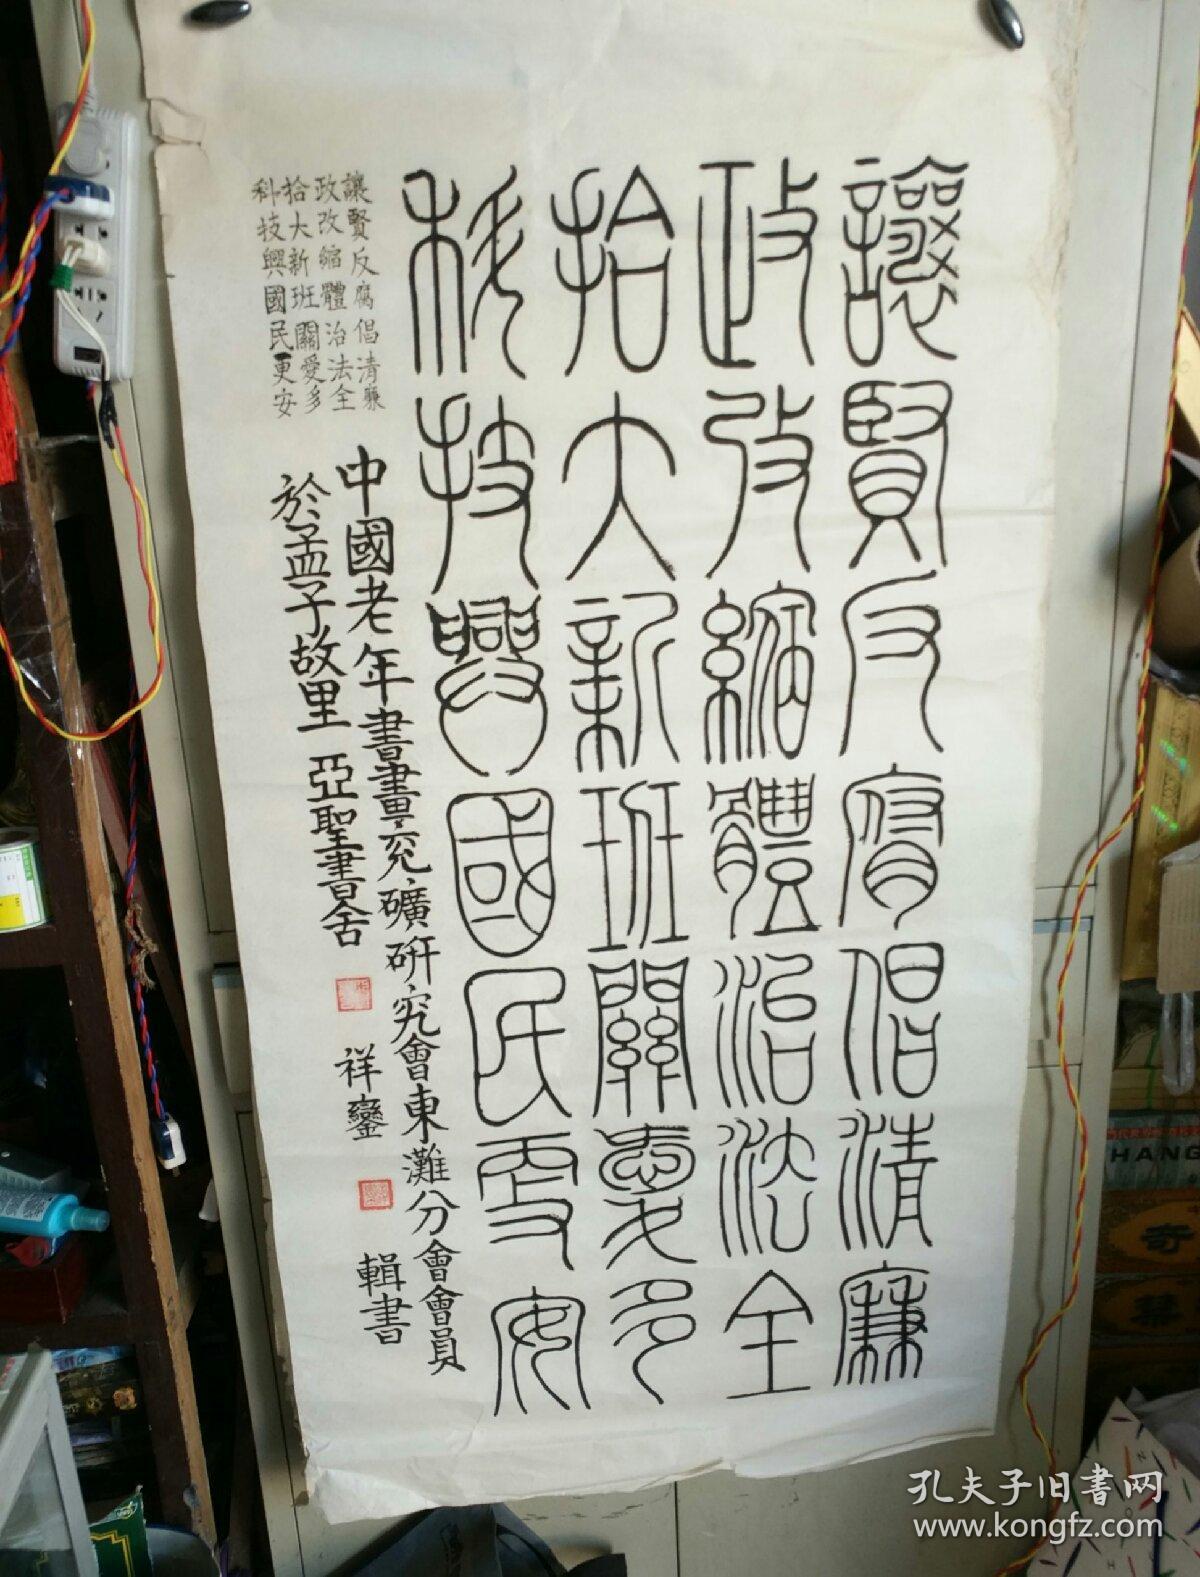 讓賢反腐倡清廉
政改縮體治法全
拾大新班關愛多
科技興國民更安
讓賢反腐倡清廉
政改縮體治法全
拾大新班關愛多
科技興國民更安
中國老年書畫兖礦研究會東灘分會會員
於孟子故里 亞聖書舍 祥鑾 輯書
孔夫子旧書网
www.kongfz.com
HANG